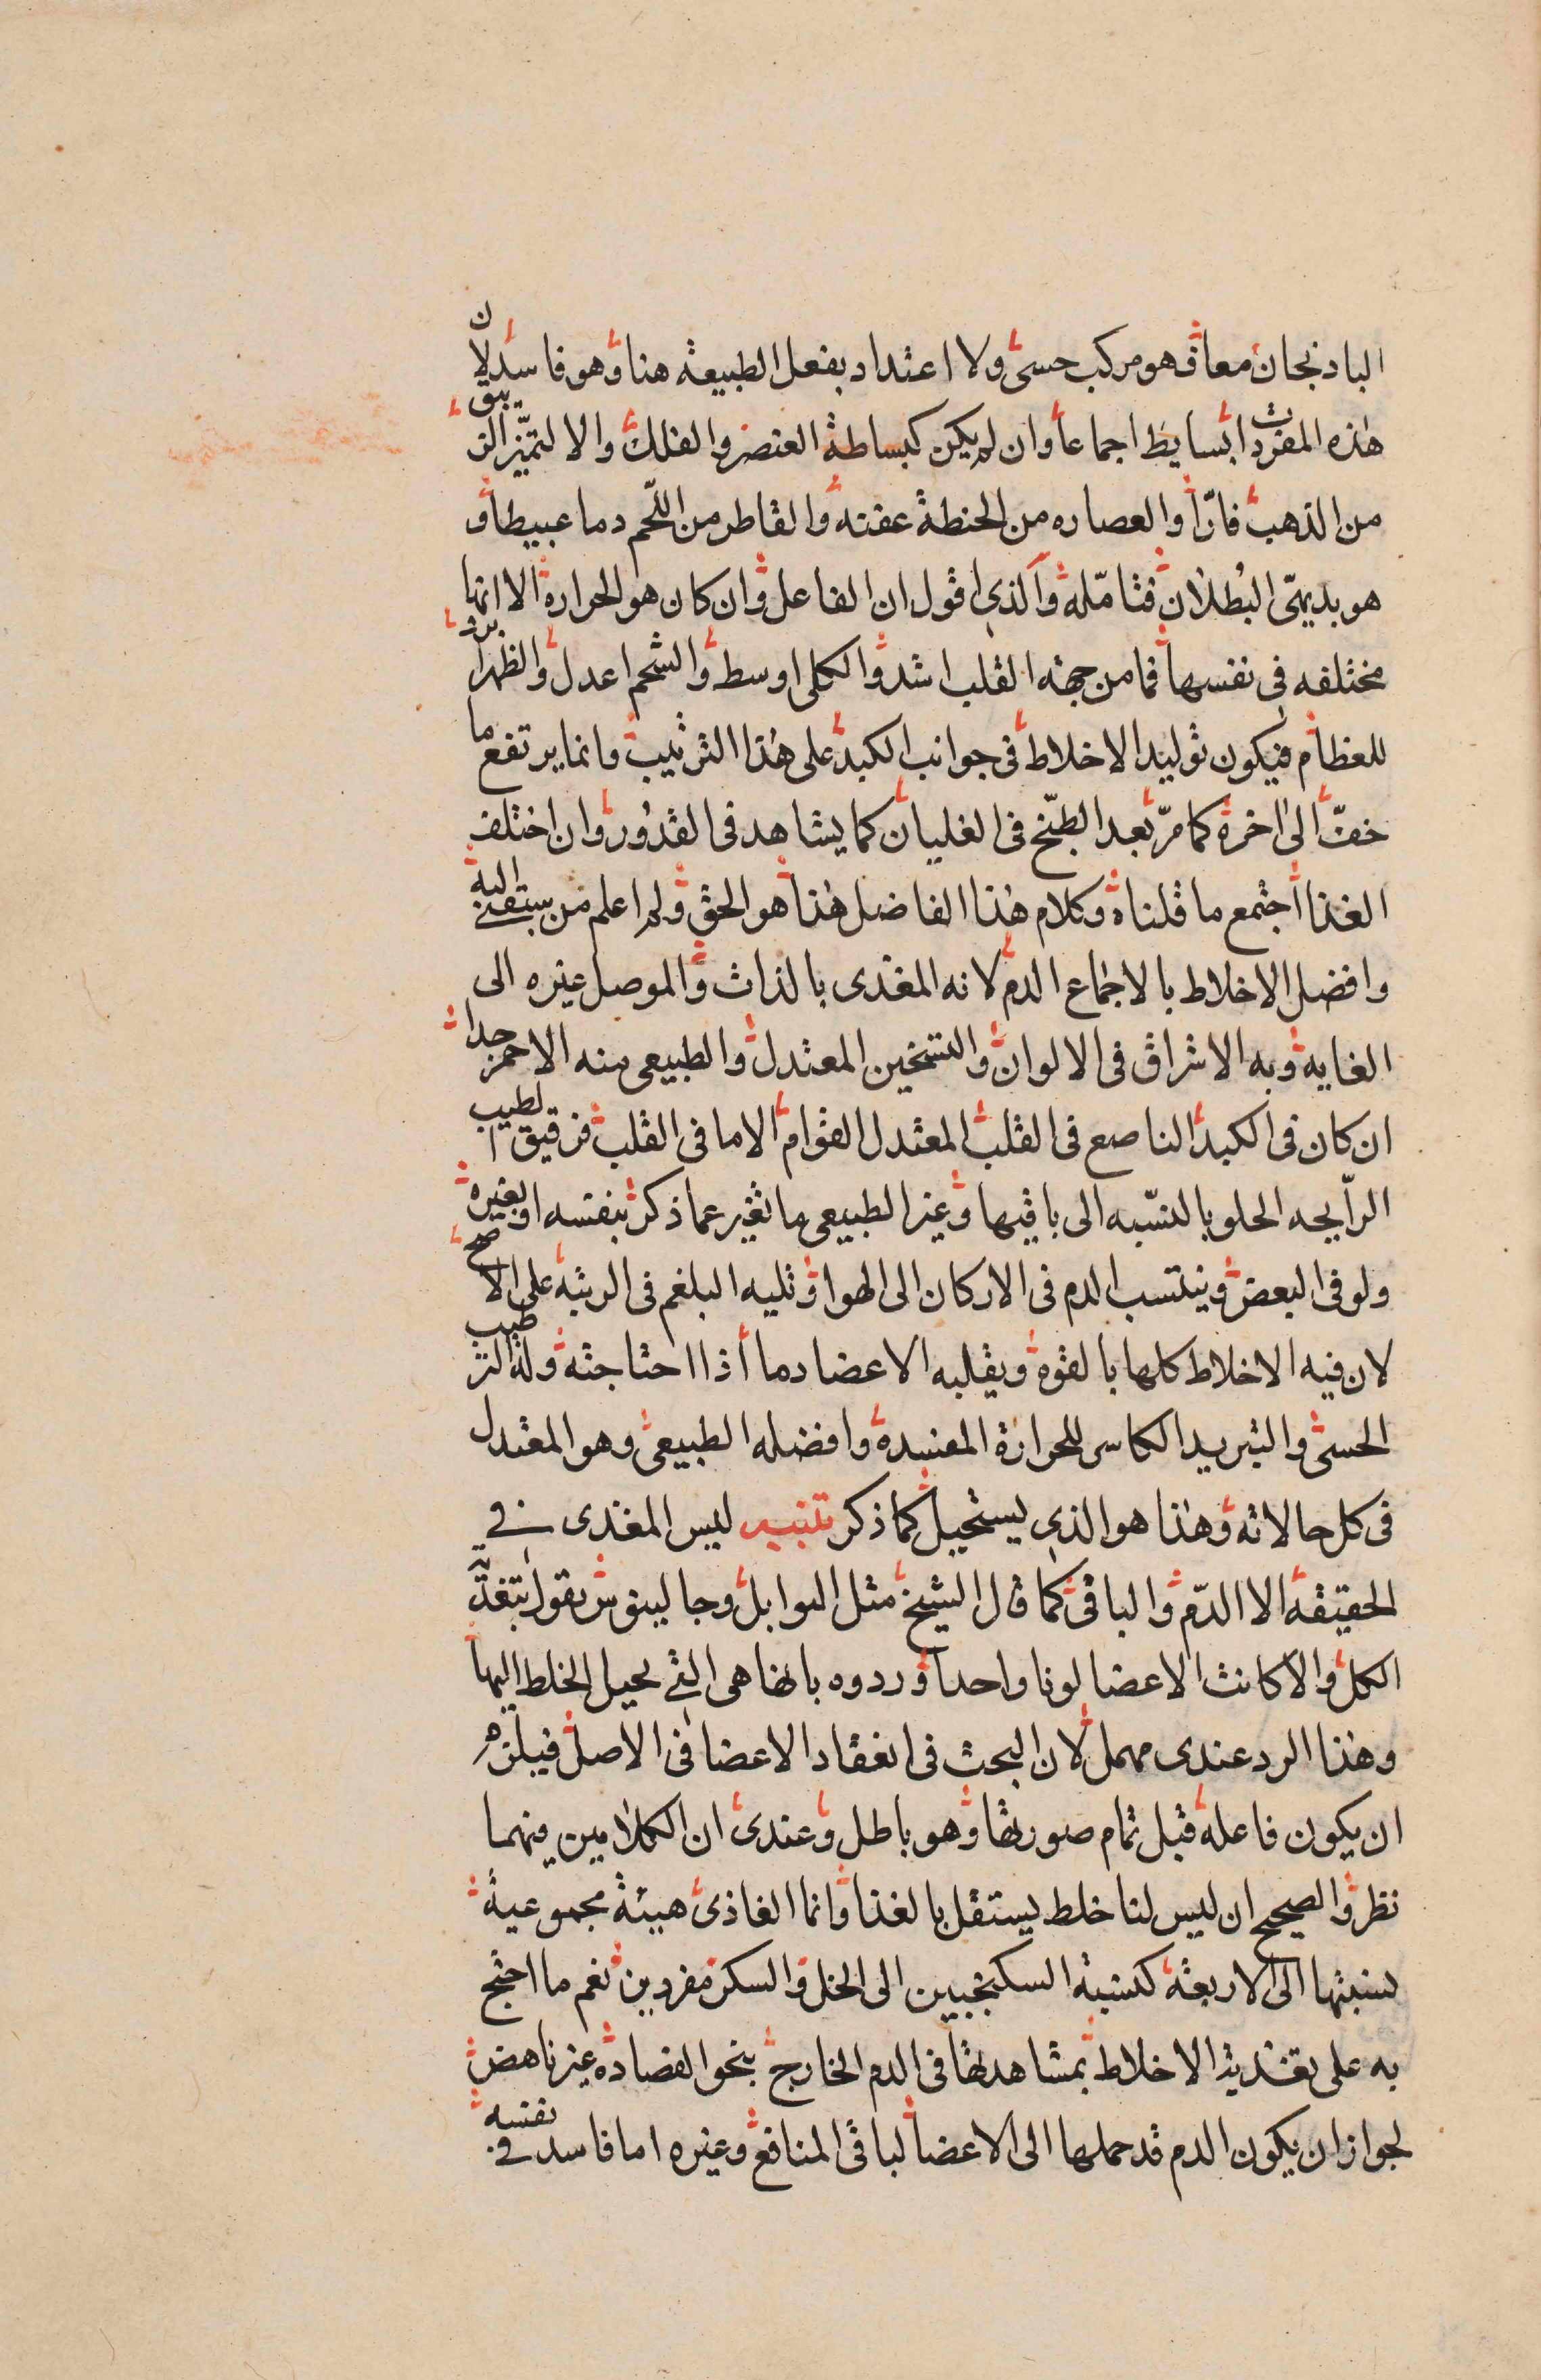 الباذنجان معا فهو مركب حسى ولا اعتداد بفعل الطبيعة هنا وهو فاسد لان
هذه المفردات بسايط اجماعا وان لم يكن كبساطة العنصر والفلك والا لتميز الزيبق
من الذهب فارّا والعصاره من الحنطة عفنه والقاطر من اللحم دما عبيطا و
هو بديهىّ البُطلان فتامّله والذى اقول ان الفاعل وان كان هو الحرارة الا انها
مختلفه فى نفسها فما من جهة القلب اشد والكلى اوسط والشحم اعدل والظهر ابرد
للعظام فيكون توليد الاخلاط فى جوانب الكبد على هذا الترتيب وانما يرتفع ما
خفّ الى اخره كما مرّ بعد الطبّخ فى الغليان كما يشاهد فى القدُور وان اختلف
الغذا اجتمع ما قلناه وكلام هذا الفاضل هذا هو الحق ولم اعلم من سبقنى اليه
وافضل الاخلاط بالاجماع الدم لانه المغذى بالذات والموصل غيره الى
الغايه وبه الاشراق فى الالوان والتسخين المعتدل والطبيعى منه الاحمر جدا
ان كان فى الكبد الناصع فى القلب المعتدل القوام الا ما فى القلب فرقيق الطيب
الرّايحه الحلو بالنسّبه الى باقيها وغير الطبيعى ما تغير عما ذكر بنفسه او بغيره
ولو فى البعض وينتسب الدم فى الاركان الى الهوا وتليه البلغم فى الرتبه على الاصح
لان فيه الاخلاط كلها بالقوة ويقلبه الاعضا دما اذا احتاجته وله الترطيب
الحسى والتبريد الكاسر للحرارة المفسدة وافضله الطبيعى وهو المعتدل
فى كل حالاته وهذا هو الذى يستحيل كما ذكر تنبيه ليس المغذى فى
الحقيقة الا الدّم والباقى كما قال الشيخ مثل التوابل وجالينوس يقول بتغذية
الكل والا كانت الاعضا لونا واحدا وردوه بانها هى التى تحيل الخلط اليها
وهذا الرد عندى مهمل لان البحث فى انعقاد الاعضا فى الاصل فيلزم
ان يكون فاعله قبل تمام صورتها وهو باطل وعندى ان الكلامين فيهما
نظر والصحيح ان ليس لنا خلط يستقل بالغذا وانما الغاذى هيئة مجموعية
نسبتها الى الاربعة كنسبة السكنجبين الى الخل والسكر مفردين نعم ما احتج
به على تغذية الاخلاط بمشاهدتها فى الدم الخارج بنحو الفصادة غير ناهض
لجواز ان يكون الدم قد حملها الى الاعضا لباقى المنافع وغيره اما فاسد فى نفسه